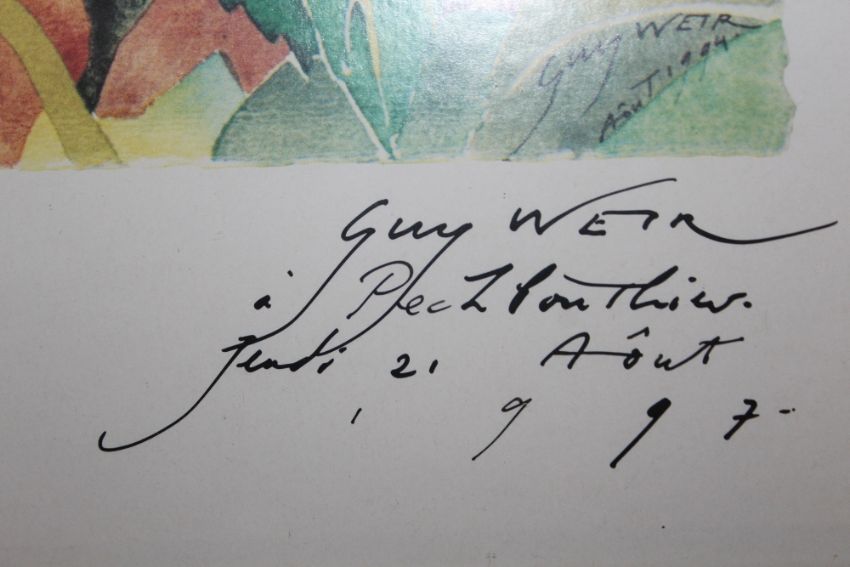 Guy WEIR
Août 1994.
Guy WEIR
à Pech
Jeudi 21 Août
1997-